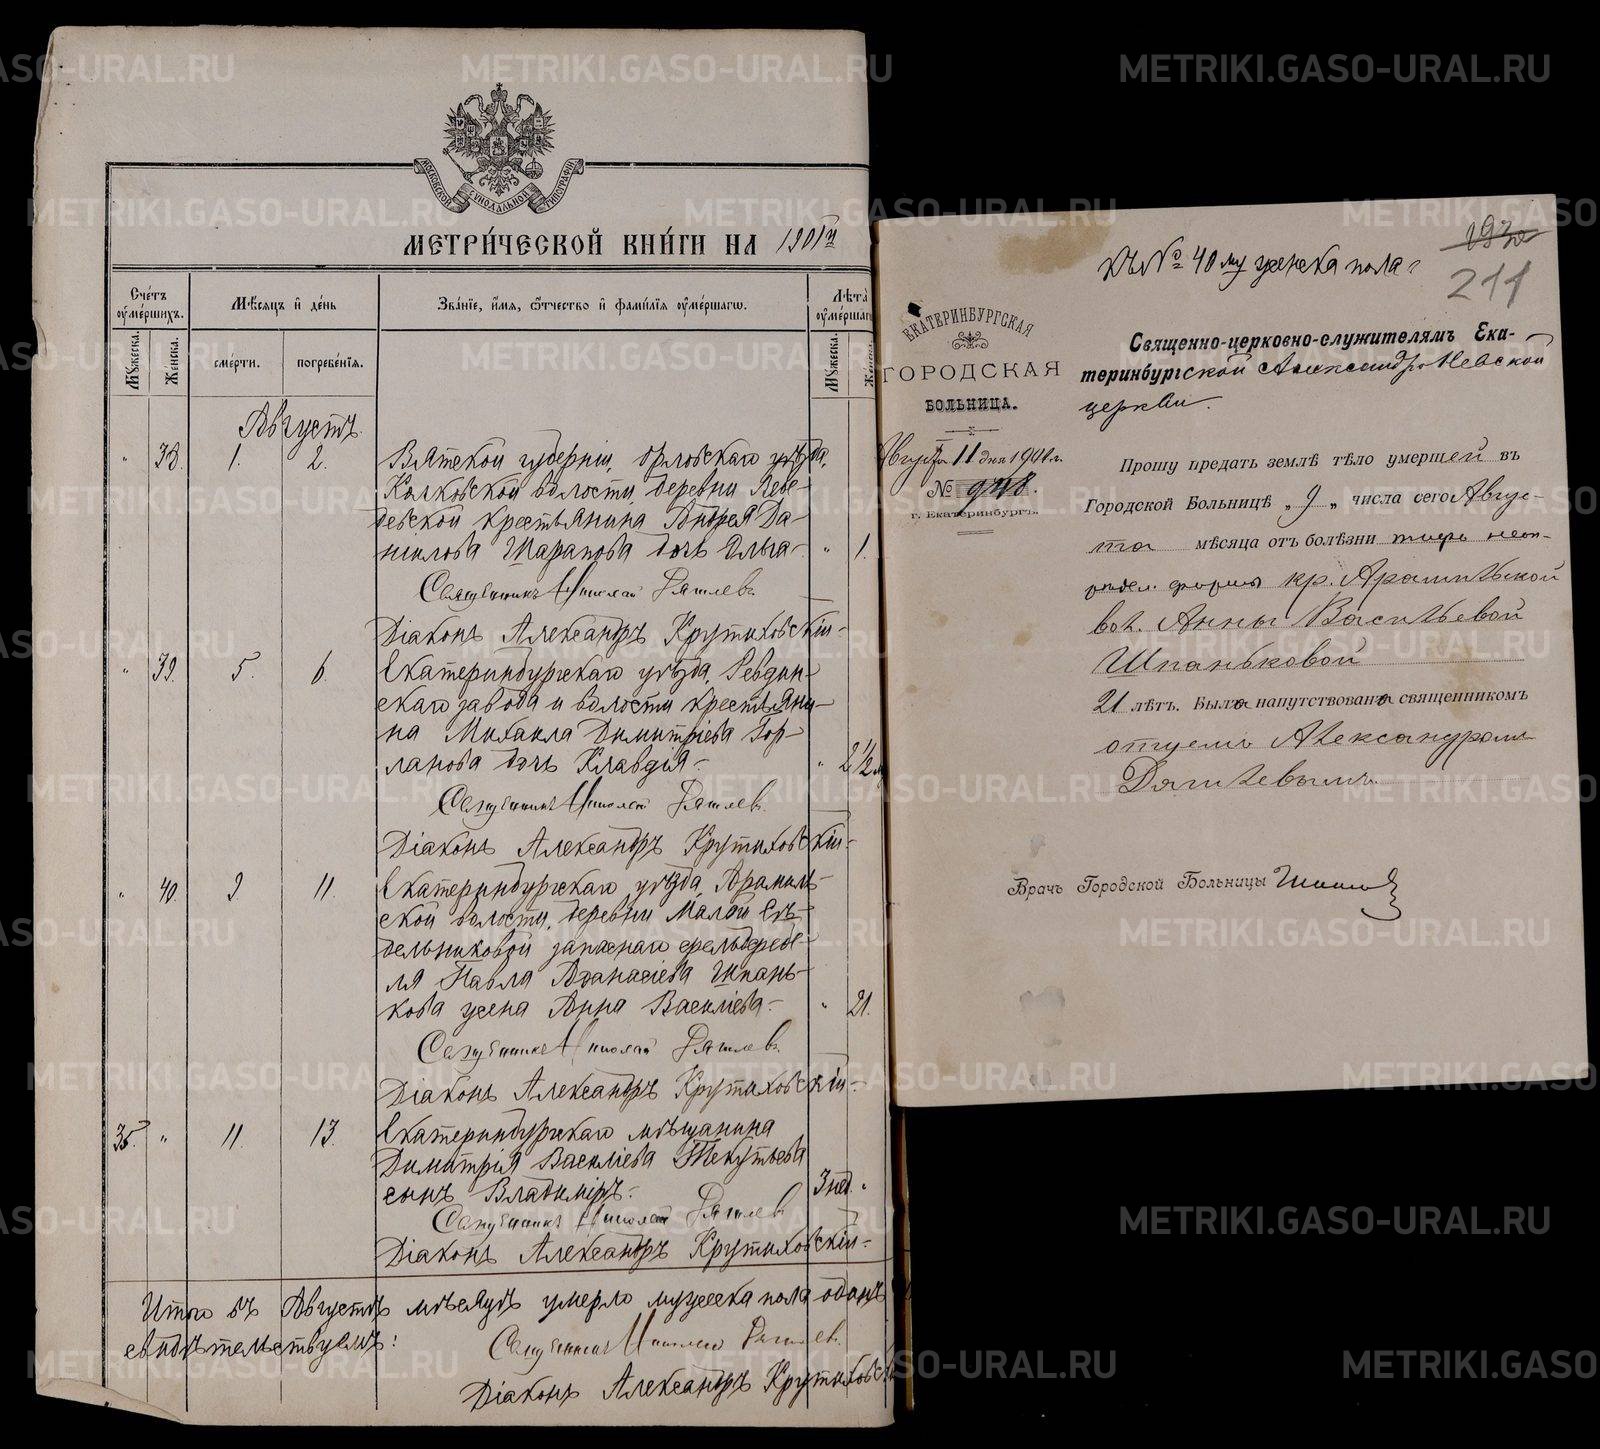 МОСКОВСКОЙ СѴНОДАЛЬНОЙ ТИПОГРАФІИ
МЕТРИ́ЧЕСКОЙ КНИ́ГИ НА 1901й
Сче́тъ оу҆ме́ршихъ.
Мѣ́сяцъ и҆ де́нь
Зва́нїе, и҆́мя, ѻ҆́тчество и҆ фами́лїя оу҆ме́ршагѡ.
Лѣта̀ оу҆ме́ршаг
Мꙋ́жеска.
Же́нска.
сме́рти.
погребе́нїя.
Мꙋ́жеска.
Августъ.
" 38. 1. 2. Вятской губерніи, Орловскаго уѣзда,
Колковской волости, деревни Лебе-
девской крестьянина Андрея Да-
нилова Шарапова дочь Ольга- " 1.
Священникъ Николай Дягилевъ
Діаконъ Александръ Крутиховскій-
" 39. 5. 6. Екатеринбургскаго уѣзда, Ревдин-
скаго завода и волости крестьяни-
на Михаила Димитріева Гор-
ланова дочь Клавдія- " 2½ м
Священникъ Николай Дягилевъ
Діаконъ Александръ Крутиховскій-
" 40. 9. 11. Екатеринбургскаго уѣзда, Арамиль-
ской волости, деревни Малой Сѣ-
дельниковой запаснаго фельдфебе-
ля Павла Аѳанасіева Шпань-
кова жена Анна Василіева- " 21.
Священникъ Николай Дягилевъ
Діаконъ Александръ Крутиховскій-
35. " 11. 13. Екатеринбургскаго мѣщанина
Димитрія Василіева Текутьева
сынъ Владиміръ- 3 нед. "
Священникъ Николай Дягилевъ
Діаконъ Александръ Крутиховскій-
Итого въ Августѣ мѣсяцѣ умерло мужеска пола одинъ
свидѣтельствуемъ:
Священникъ Николай Дягилевъ
Діаконъ Александръ Крутиховск
193
211
Къ № 40му женска пола
ЕКАТЕРИНБУРГСКАЯ
ГОРОДСКАЯ
БОЛЬНИЦА.
Августа 11 дня 1901 г.
№ 948.
г. Екатеринбургъ.
Священно-церковно-служителямъ Ека-
теринбургской Александро Невской
церкви.
Прошу предать землѣ тѣло умершей въ
Городской Больницѣ „9„ числа сего Авгус-
та мѣсяца отъ болѣзни тифъ неоп-
редѣл. формы кр. Арамильской
вол. Анны Васильевой
Шпаньковой
21 лѣтъ. Была напутствована священникомъ
отцемъ Александромъ
Дягилевымъ
Врачъ Городской Больницы
METRIKI.GASO-URAL.RU